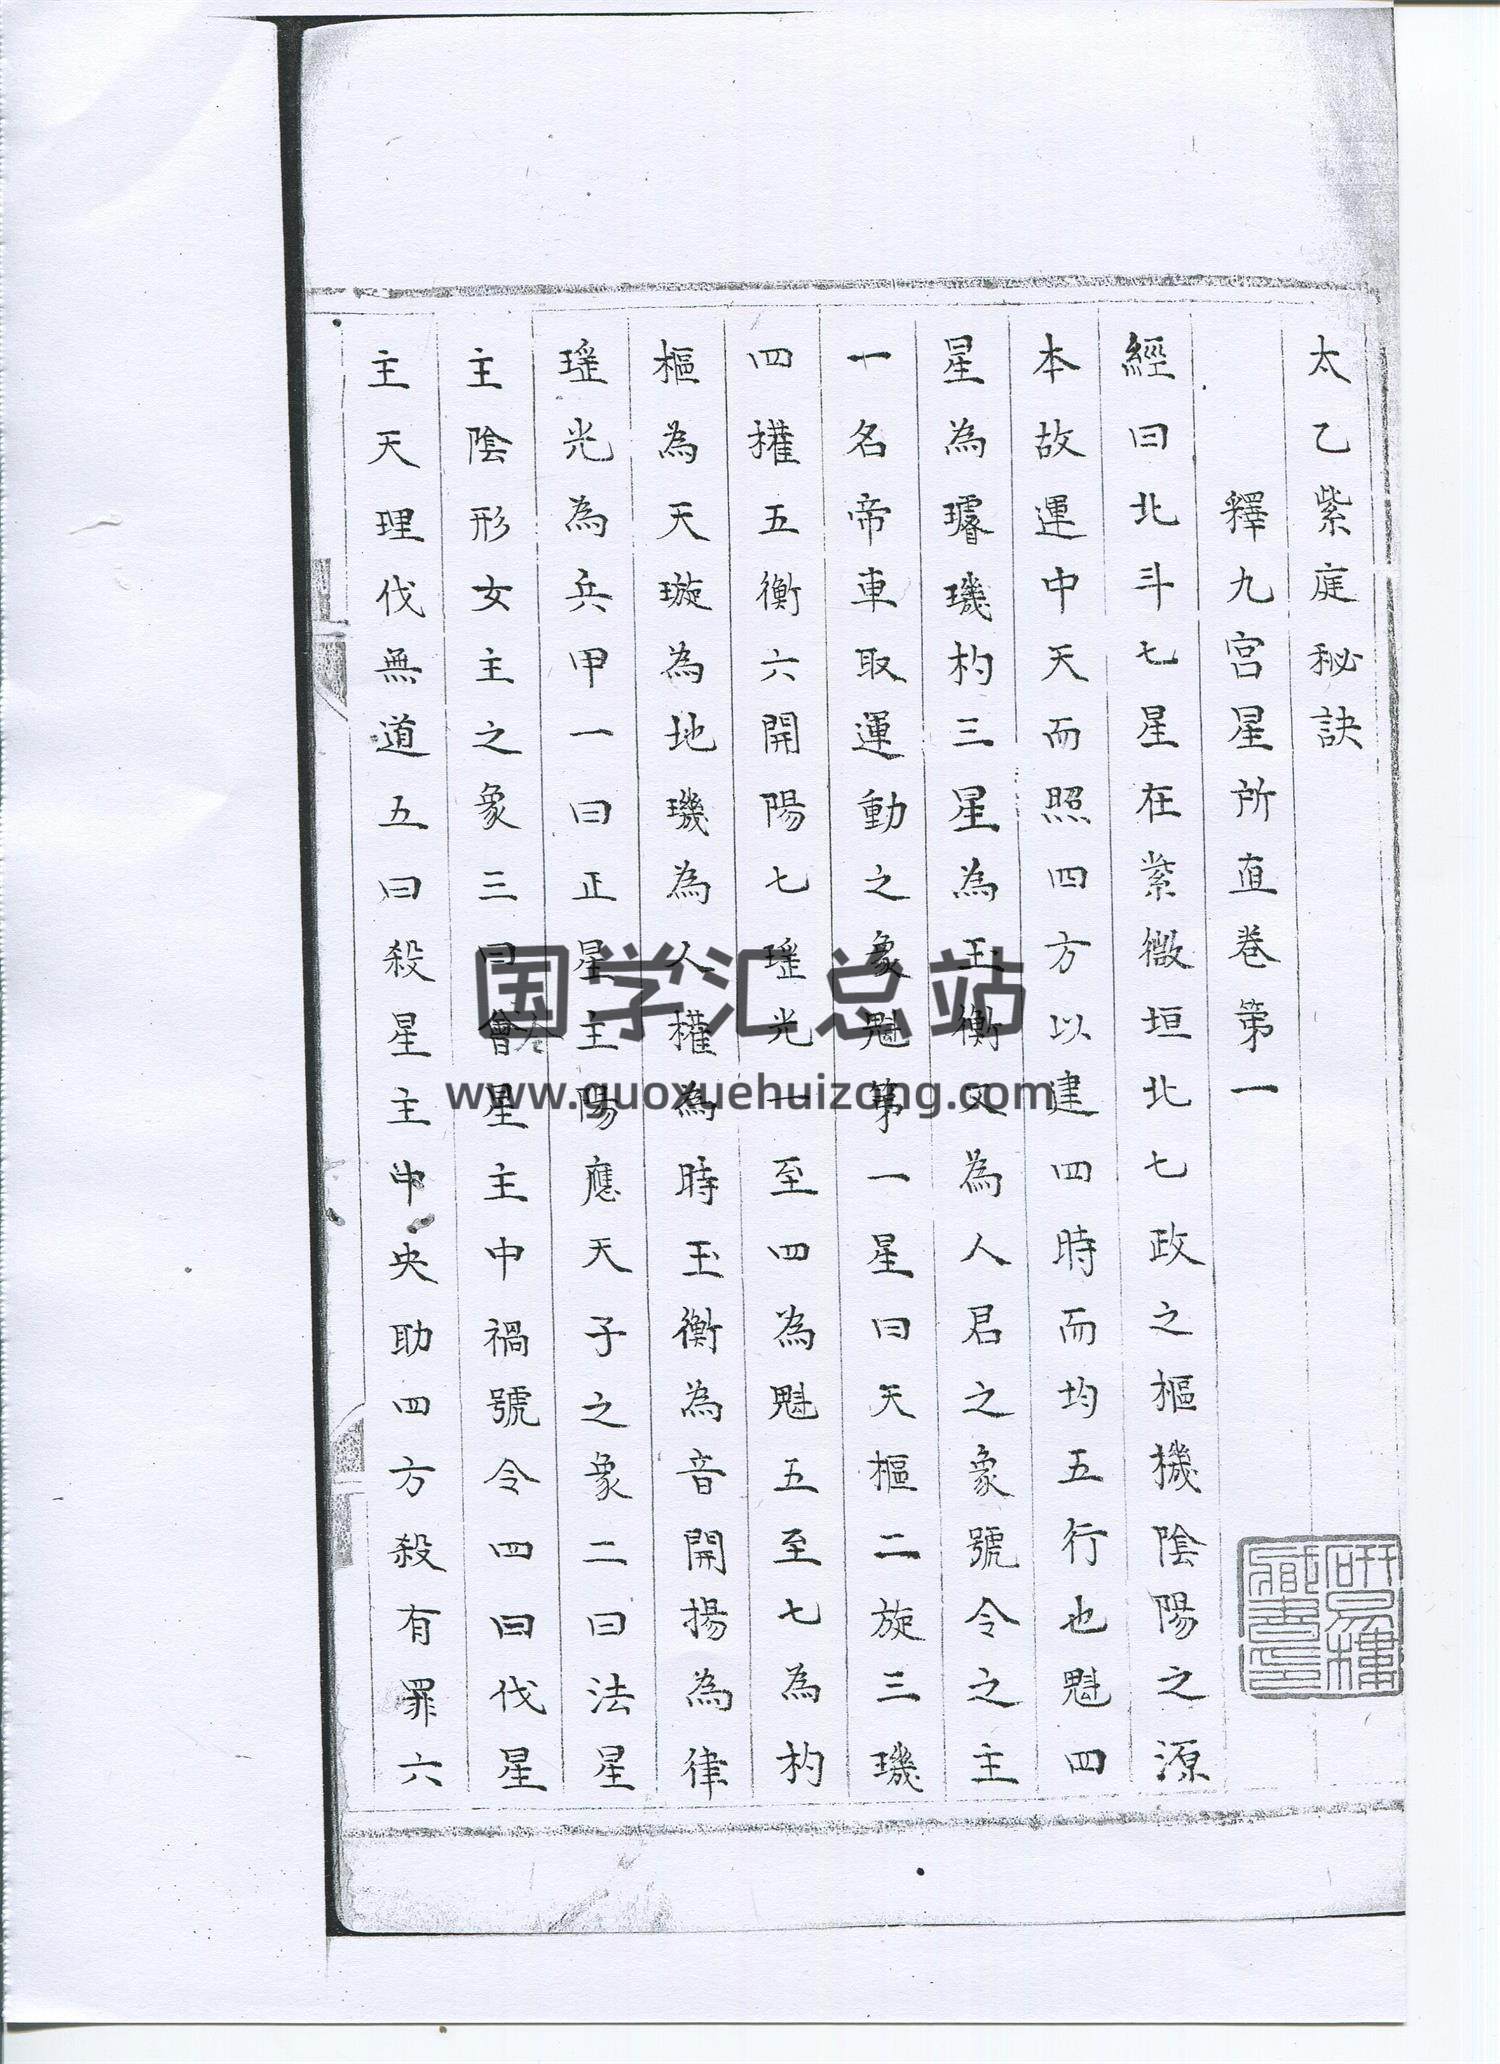 太乙紫庭秘訣
釋九宮星所直卷第一
經曰北斗七星在紫微垣北七政之樞機陰陽之源
本故運中天而照四方以建四時而均五行也魁四
星為璿璣杓三星為玉衡又為人君之象號令之主
一名帝車取運動之象魁第一星曰天樞二旋三璣
四權五衡六開陽七瑤光一至四為魁五至七為杓
樞為天璇為地璣為人權為時玉衡為音開揚為律
瑤光為兵甲一曰正星主陽應天子之象二曰法星
主陰形女主之象三曰會星主中禍號令四曰伐星
主天理伐無道五曰殺星主中央助四方殺有罪六
研易樓藏書印
国学汇总站
www.guoxuehuizong.com